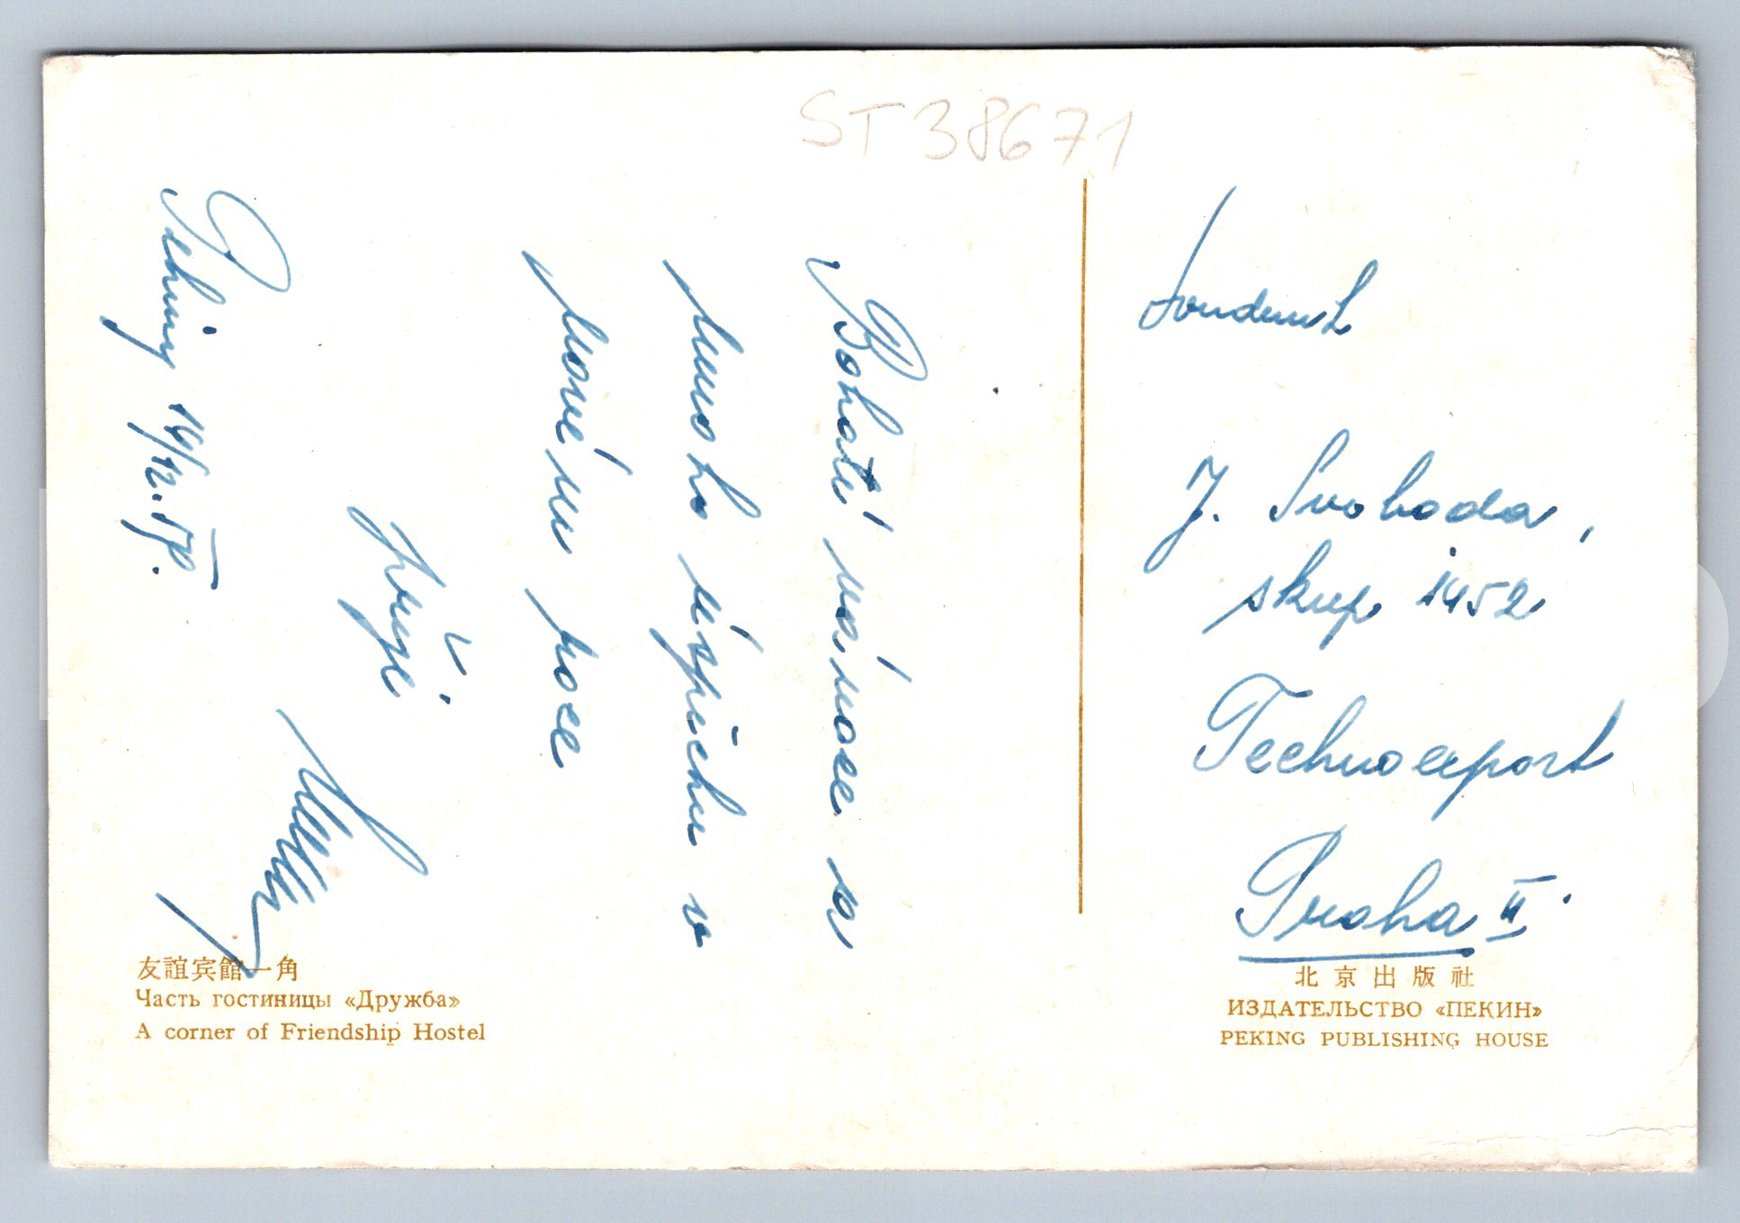 ST38671
Peking 14/12.59.
Bohaté vánoce a
mnoho úspěchu v
novém roce
přeje
Soudruh
J. Svoboda,
skup. 1452
Technoexport
Praha II.
友誼宾館一角
Часть гостиницы «Дружба»
A corner of Friendship Hostel
北京出版社
ИЗДАТЕЛЬСТВО «ПЕКИН»
PEKING PUBLISHING HOUSE